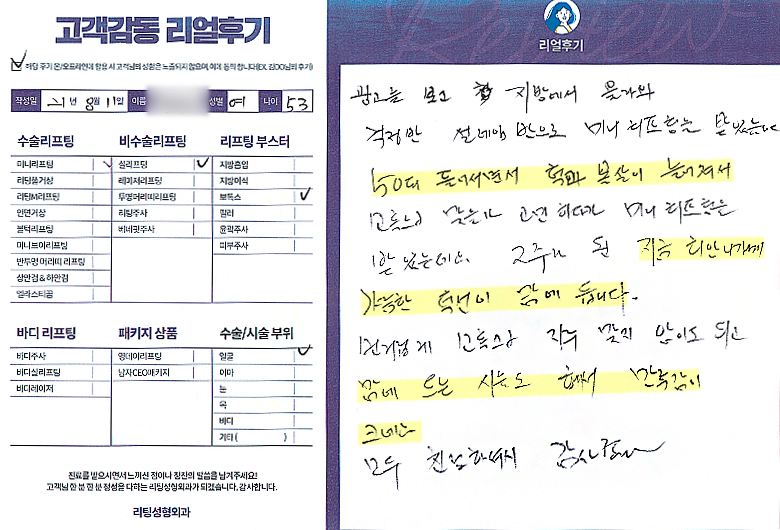 고객감동 리얼후기
해당 후기 온/오프라인에 활용 시 고객님의 성함은 노출되지 않으며, 이에 동의 합니다(EX. 김OO님의 후기)
작성일 21년 8월 11일 이름 성별 여 나이 53
수술리프팅
미니리프팅
리팅풀거상
리팅M리프팅
안면거상
블턱리프팅
미니브이리프팅
반투명 머리띠 리프팅
상안검 & 하안검
엘라스티꿈
비수술리프팅
실리프팅
레이저리프팅
투명머리띠리프팅
리팅주사
버네핏주사
리프팅 부스터
지방흡입
지방이식
보톡스
필러
윤곽주사
피부주사
바디 리프팅
바디주사
바디실리프팅
바디레이저
패키지 상품
영데이리프팅
남자CEO패키지
수술/시술 부위
얼굴
이마
눈
목
바디
기타 ( )
진료를 받으시면서 느끼신 점이나 칭찬의 말씀을 남겨주세요!
고객님 한 분 한 분 정성을 다하는 리팅성형외과가 되겠습니다. 감사합니다.
리팅성형외과
리얼후기
광고를 보고 지방에서 올라와
걱정반 설레임 반으로 미니 리프팅을 받았는데
50대 들어서면서 턱과 볼살이 늘어져서
보톡스만 맞을까 고민하다가 미니 리프팅을
받았는데요. 2주가 된 지금 회안나가게
갸름한 턱선이 맘에 듭니다.
번거롭게 보톡스 자주 맞지 않아도 되고
맘에 드는 시술도 해서 만족감이
크네요
모두 친절하셔서 감사해요